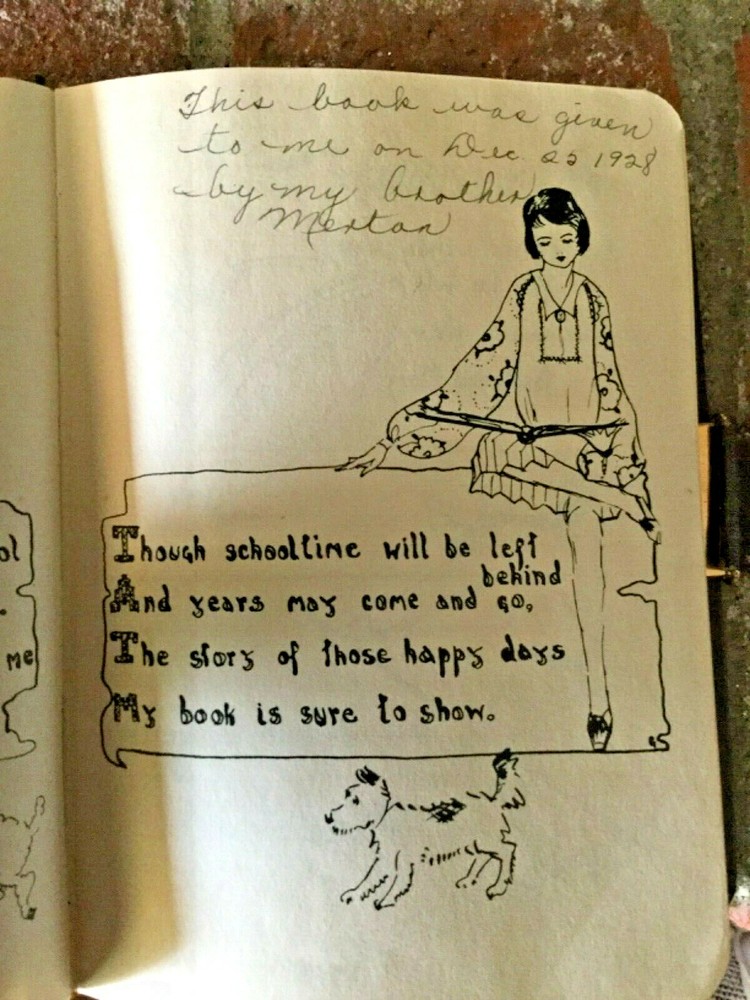 This book was given
to me on Dec 25 1928
by my brother
Merton
ol
me
Though schooltime will be left
behind
And years may come and go,
The story of those happy days
My book is sure to show.